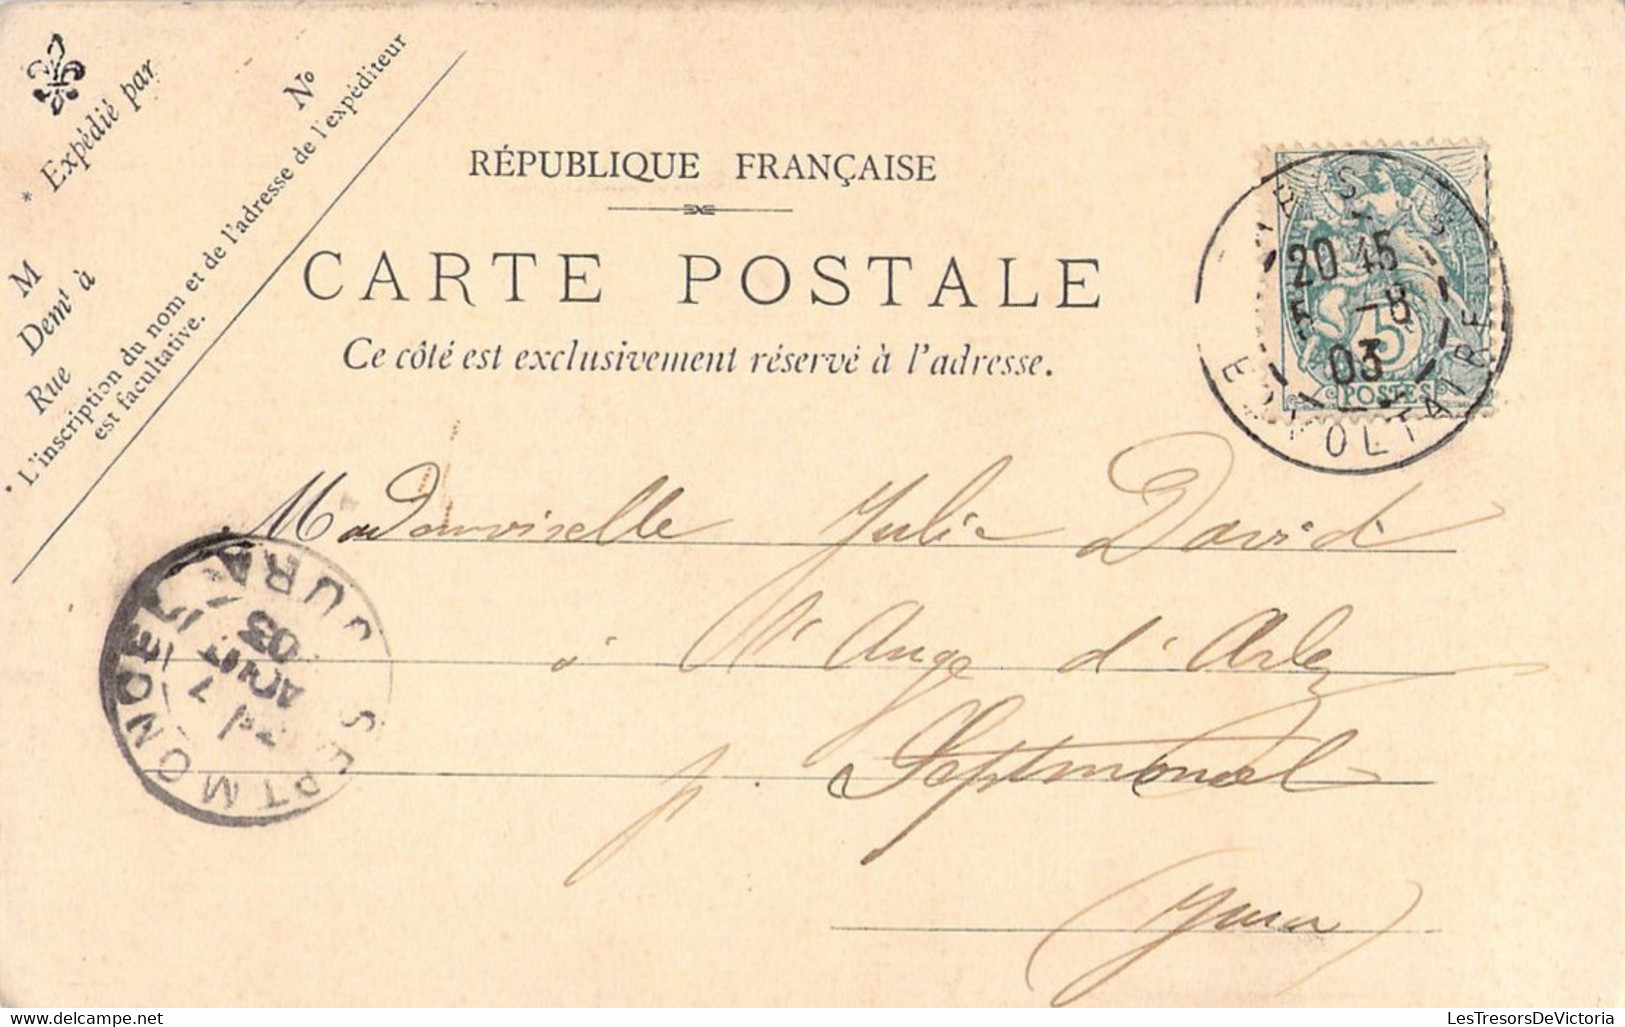 * Expédié par
N°
M
Demt à
Rue
• L'inscription du nom et de l'adresse de l'expéditeur
est facultative.
RÉPUBLIQUE FRANÇAISE
CARTE POSTALE
Ce côté est exclusivement réservé à l'adresse.
20 45
-8
03
VOLTAIRE
5
POSTES
Mademoiselle Julie David
à St Ange d'
p. Septmoncel
(Jura)
SEPTMONCEL
JURA
7
AOUT
03
LesTresorsDeVictoria